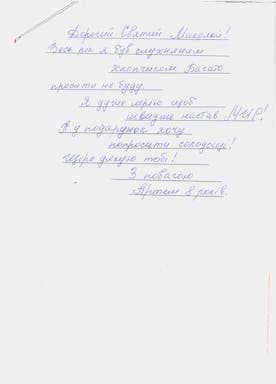 Дорогий Святий Миколой!
Весь рік я був слухняним
хлопчиком. Багато
просити не буду.
Я дуже мрію щоб
швидше настав МИР!
А у подарунок хочу
попросити солодощі!
Щіро дякую тобі!
З повагою
Артем 8 років.